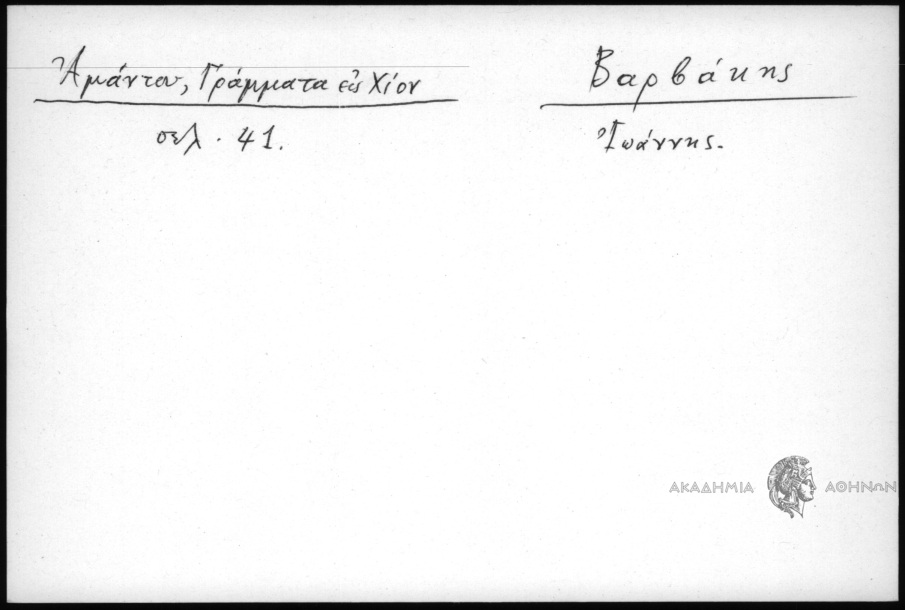 Ἀμάντου, Γράμματα εἰς Χίον
σελ. 41.
Βαρβάκης
Ἰωάννης.
ΑΚΑΔΗΜΙΑ ΑΘΗΝΩΝ